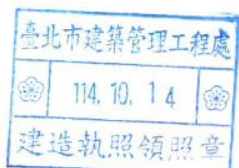 臺北市建築管理工程處
114. 10. 14
建造執照領照章